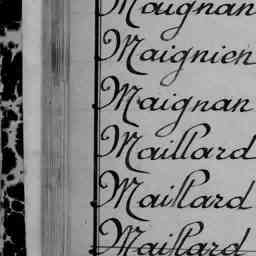 Maignan
Maignien
Maignan
Maillard
Maillard
Maillard